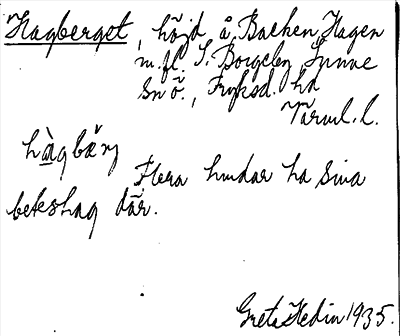 Hagberget, höjd å Backen, Hagen
m.fl. S. Borgeby, Sunne
sn ö., Fryksd. hd
Värml. l.
hàgbær̆j
Flera hindar ha sina
beteshag där.
Greta Hedin 1935.